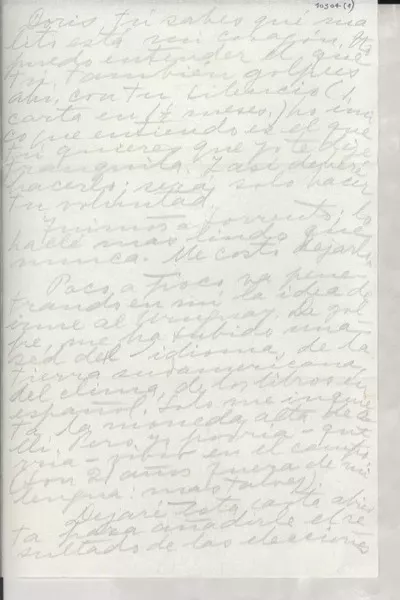 10304 (1)
Doris, tú sabes qué ma-
lito está mi corazón. No
puedo entender el que
tú también golpees
ahí, con tu silencio (1
carta en 1½ meses.) Lo úni-
co que entiendo es el que
tú quieres que yo te deje
tranquila. Y así deberé
hacerlo; será solo hacer
tu voluntad.
Fuimos a Sorrento; lo
hallé mas lindo que
nunca. Me costó dejarlo.
Poco a poco va pene-
trando en mí la idea de
irme al Uruguay. De gol-
pe, me ha subido una
sed del idioma, de la
tierra sudamericana,
del clima, de los libros en
español. Solo me inquie-
ta la moneda alta de a-
llí. Pero yo podría - que-
rría - vivir en el campo
(Son 21 años fuera de mi
lengua: mas tal vez).
Dejaré esta carta abier-
ta para añadirle el re-
sultado de las elecciones